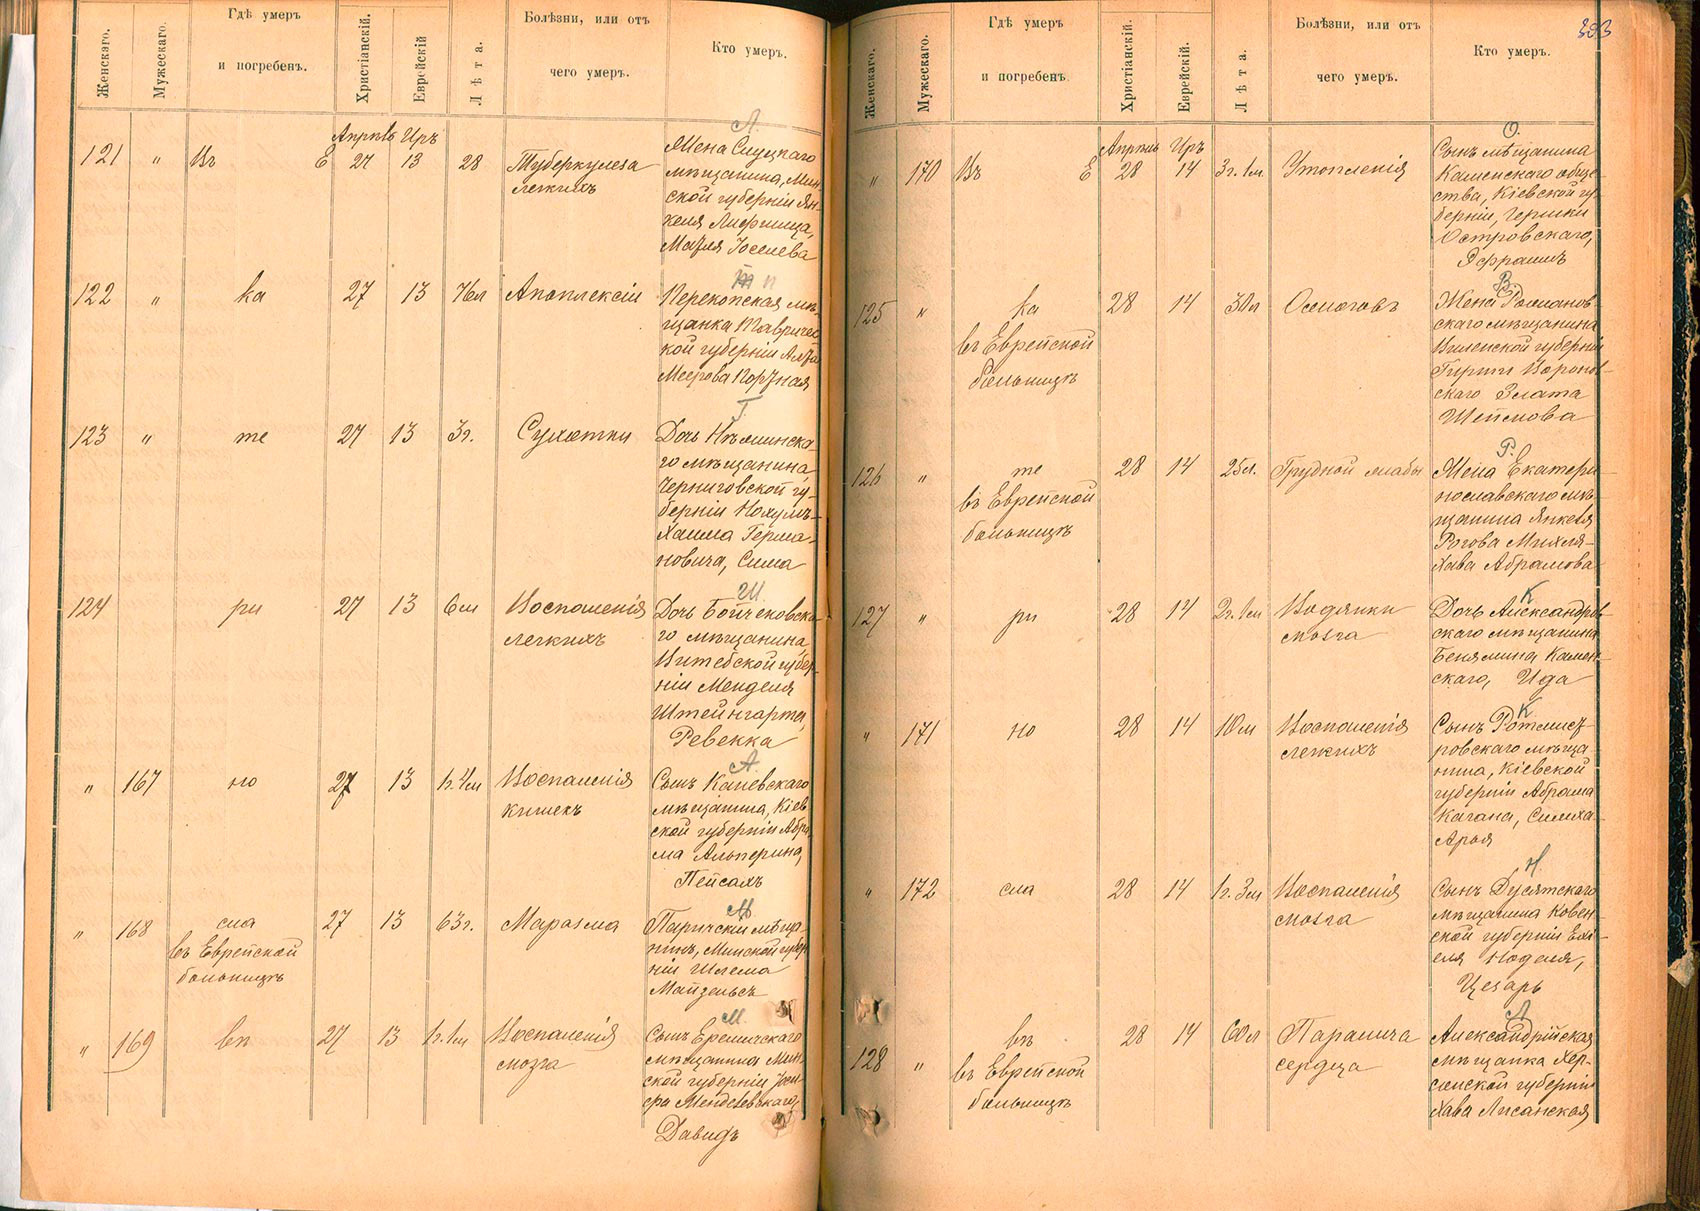 Женскаго.
Мужескаго.
Гдѣ умеръ
и погребенъ.
Христіанскій.
Еврейскій
Лѣта.
Болѣзни, или отъ
чего умеръ.
Кто умеръ.
Апрѣль Иръ
Л.
121 " Въ Е 27 13 28 Туберкулеза
легкихъ
Жена Слуцкаго
мѣщанина, Мин-
ской губерніи Ян-
келя Лифшица,
122 " ка 27 13 76л Апоплексіи
П
Перекопская мѣ-
щанка Тавричес-
кой губерніи
Меерова
123 " те 27 13 3г. Сухотки
Г.
Дочь
го мѣщанина
Черниговской гу-
берніи Нохумъ-
Хаима Герма-
новича, Сима
124 ри 27 13 6м Воспаленія
легкихъ
Ш.
Дочь
го мѣщанина,
Витебской губер-
ніи Менделя
Штейнгарта,
Ревекка
" 167 но 27 13 1г. 4м Воспаленія
кишекъ
А.
Сынъ Каневскаго
мѣщанина, Кіев
ской губерніи Абра-
ма Альперина,
Пейсахъ
" 168 сла 27 13 63г. Маразма
въ Еврейской
больницѣ
М.
Паричскій мѣща-
нинъ, Минской губер
ніи Шлема
Майзельсъ
" 169 въ 27 13 1г. 1м Воспаленія
мозга
М.
Сынъ
мѣщанина Мин-
ской губерніи
Давидъ
Женскаго.
Мужескаго.
Гдѣ умеръ
и погребенъ.
Христіанскій.
Еврейскій.
Лѣта.
Болѣзни, или отъ
чего умеръ.
Кто умеръ.
Апрѣль Иръ
О.
" 170 Въ Е 28 14 3г. 1м Утопленія
Сынъ мѣщанина
Каменскаго обще-
ства, Кіевской гу-
берніи, Гершки
Островскаго,
Эфраимъ
125 " ка 28 14 30л Ожоговъ
въ Еврейской
больницѣ
В.
Жена Романов-
скаго мѣщанина
Виленской губерніи
Гирши Воронов-
скаго Злата
126 " те 28 14 25л. Грудной жабы
въ Еврейской
больницѣ
Р.
Жена Екатери-
нославскаго мѣ-
щанина Янкеля
Рогова Михля-
Хава Абрамова
127 " ри 28 14 2г. 1м Водянки
мозга
К
Дочь Александров-
скаго мѣщанина
Беньямина Камен-
скаго, Ида
" 171 но 28 14 10м Воспаленія
легкихъ
К
Сынъ Ротмист-
ровскаго мѣща-
нина, Кіевской
губерніи Абрама
Кагана, Симха-
Арья
" 172 сла 28 14 1г. 3м Воспаленія
мозга
Н.
Сынъ Дусятскаго
мѣщанина Ковен-
ской губерніи Ехі-
еля Ноделя,
Цезарь
128 " въ 28 14 60л Паралича
сердца
въ Еврейской
больницѣ
Л
Александрійская
мѣщанка Хер-
сонской губерніи
Хава Лисанская